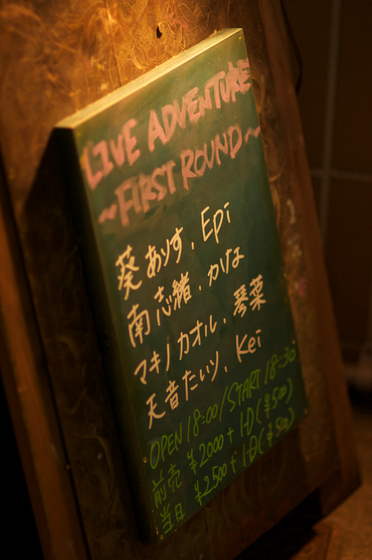 LIVE ADVENTURE
~FIRST ROUND~
葵 ありす、Epi
南 志緒、かげな
マキノ カオル、琴菜
天音たいツ、Kei
OPEN 18:00/START 18:30
前売 ¥2000 + 1D(¥500)
当日 ¥2500 + 1D(¥500)